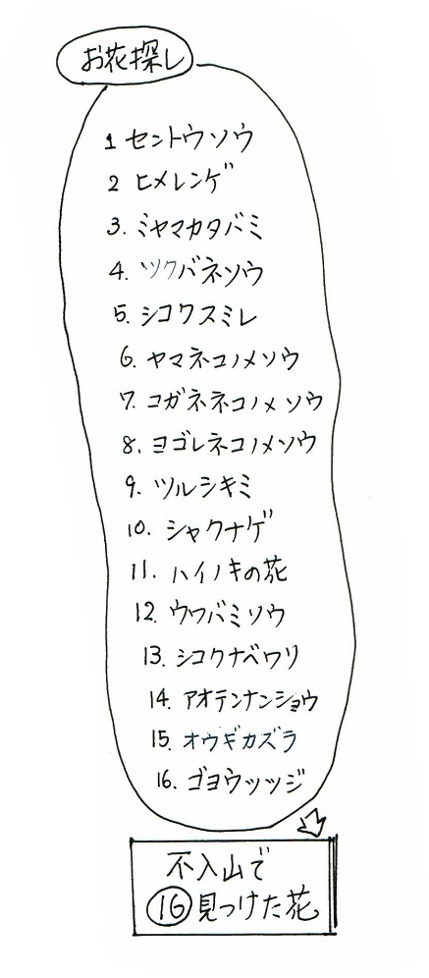 お花探し
1 セントウソウ
2 ヒメレンゲ
3. ミヤマカタバミ
4. ツクバネソウ
5. シコクスミレ
6. ヤマネコノメソウ
7. コガネネコノメソウ
8. ヨゴレネコノメソウ
9. ツルシキミ
10. シャクナゲ
11. ハイノキの花
12. ウワバミソウ
13. シコクナベワリ
14. アオテンナンショウ
15. オウギカズラ
16. ゴヨウツツジ
不入山で
⑯見つけた花